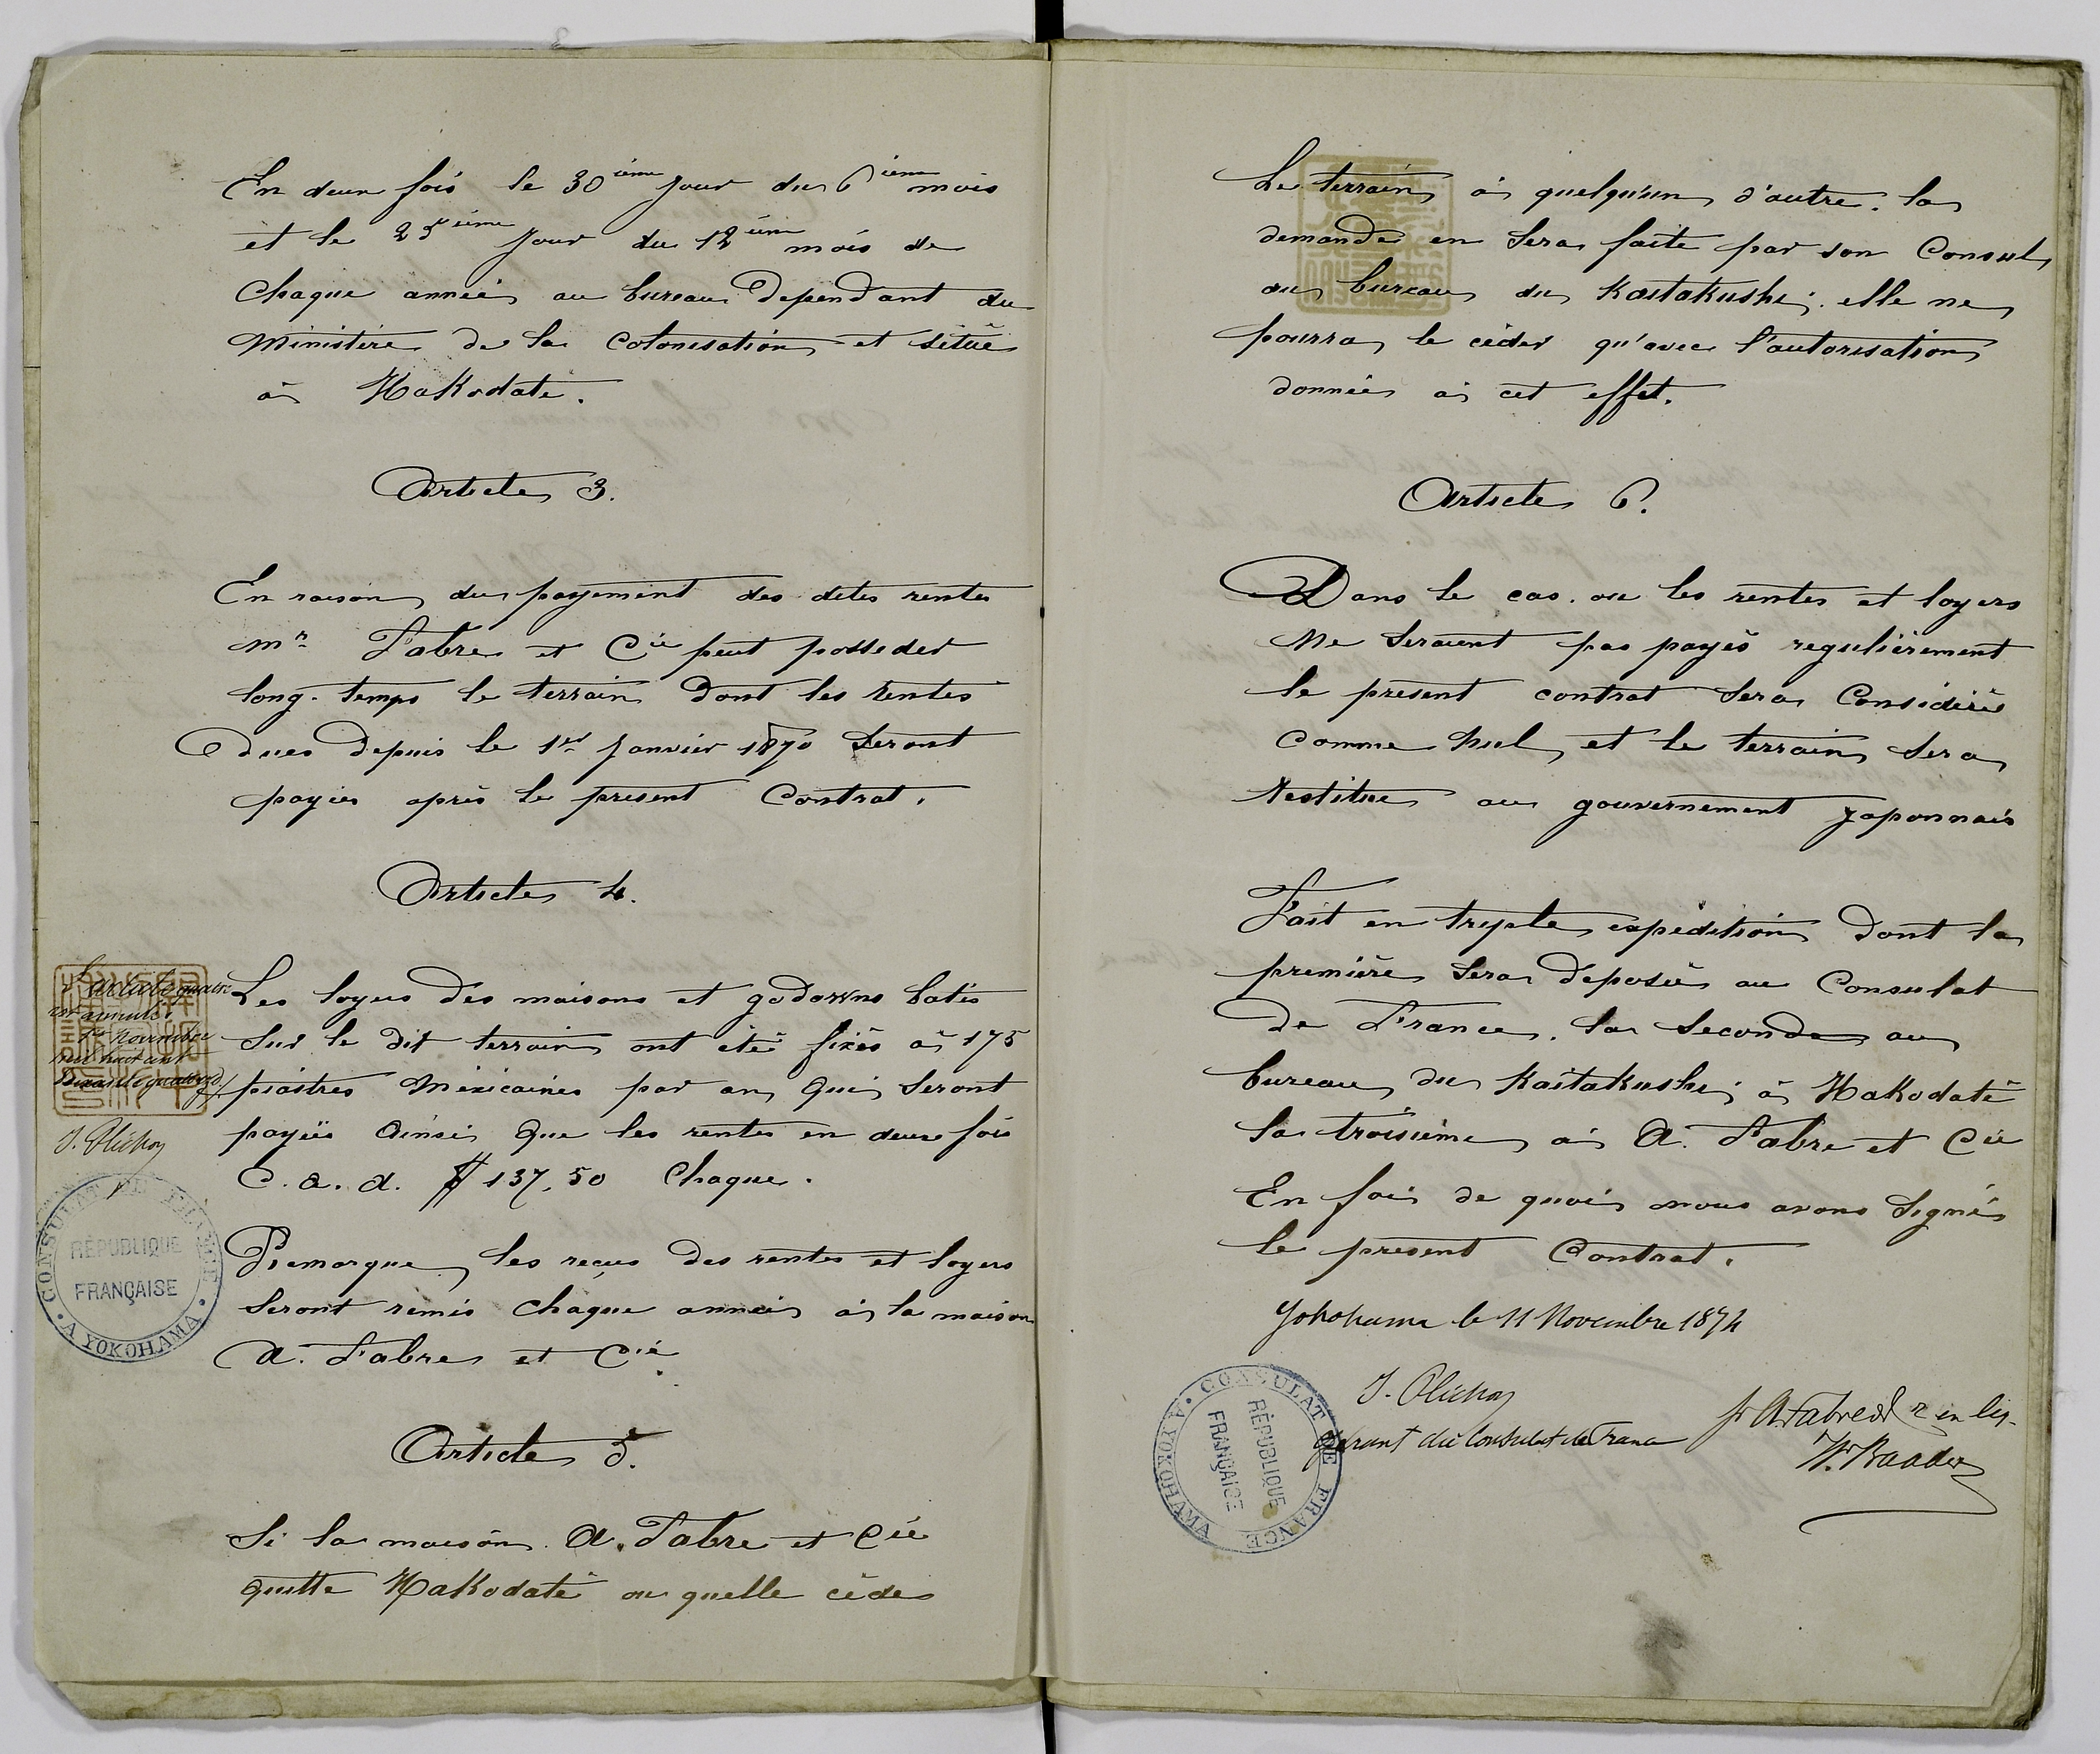 En deux fois le 30ième jour du 6ième mois
et le 25ième jour du 12ième mois de
Chaque année au bureau Dependant du
Ministère de la Colonisation et situé
à Hakodaté.
Article 3.
En raison du payement des dites rentes
Mr Fabre et Cie peut posseder
long-temps le terrain Dont les rentes
Dues Depuis le 1er Janvier 1870 Seront
payées après le présent Contrat.
Article 4.
L'article quatre
est annulé.
Novembre
mil huit cent
Soixante quatorze
J. Plichon
Les loyers des maisons et godowns batis
Sur le dit terrain ont été fixés à 175
piastres Méxicaines par an, qui seront
payées Ainsi Que les rentes en deux fois
C. a. d. $ 137,50 Chaque.
CONSULAT DE FRANCE
RÉPUBLIQUE
FRANÇAISE
A YOKOHAMA
Remarque, les reçus des rentes et loyers
Seront remis Chaque année à la maison
A. Fabre et Cie.
Article 5.
Si la maison A. Fabre et Cie
quitte Hakodaté ou quelle cède
Le terrain à quelqu'un d'autre. la
demande en Sera faite par son Consul
au bureau du Kaitakushi; elle ne
pourra le céder qu'avec l'autorisation
donnée à cet effet.
Article 6.
Dans le cas ou les rentes et loyers
Ne Seraient pas payés regulièrement
le présent contrat Sera Considéré
Comme Nul, et le terrain Sera
Restitué au gouvernement Japonnais
Fait en tryple expédition Dont la
première Sera Déposée au Consulat
De France, la Seconde au
bureau du Kaitakushi; à Hakodaté
la troisième à A. Fabre et Cie
En foi de quoi nous avons Signé
le présent Contrat.
Yokohama le 11 Novembre 1874
J. Plichon
Gérant du Consulat de France
CONSULAT DE FRANCE
RÉPUBLIQUE
FRANÇAISE
A YOKOHAMA
A Fabre en liq.
W. Baader